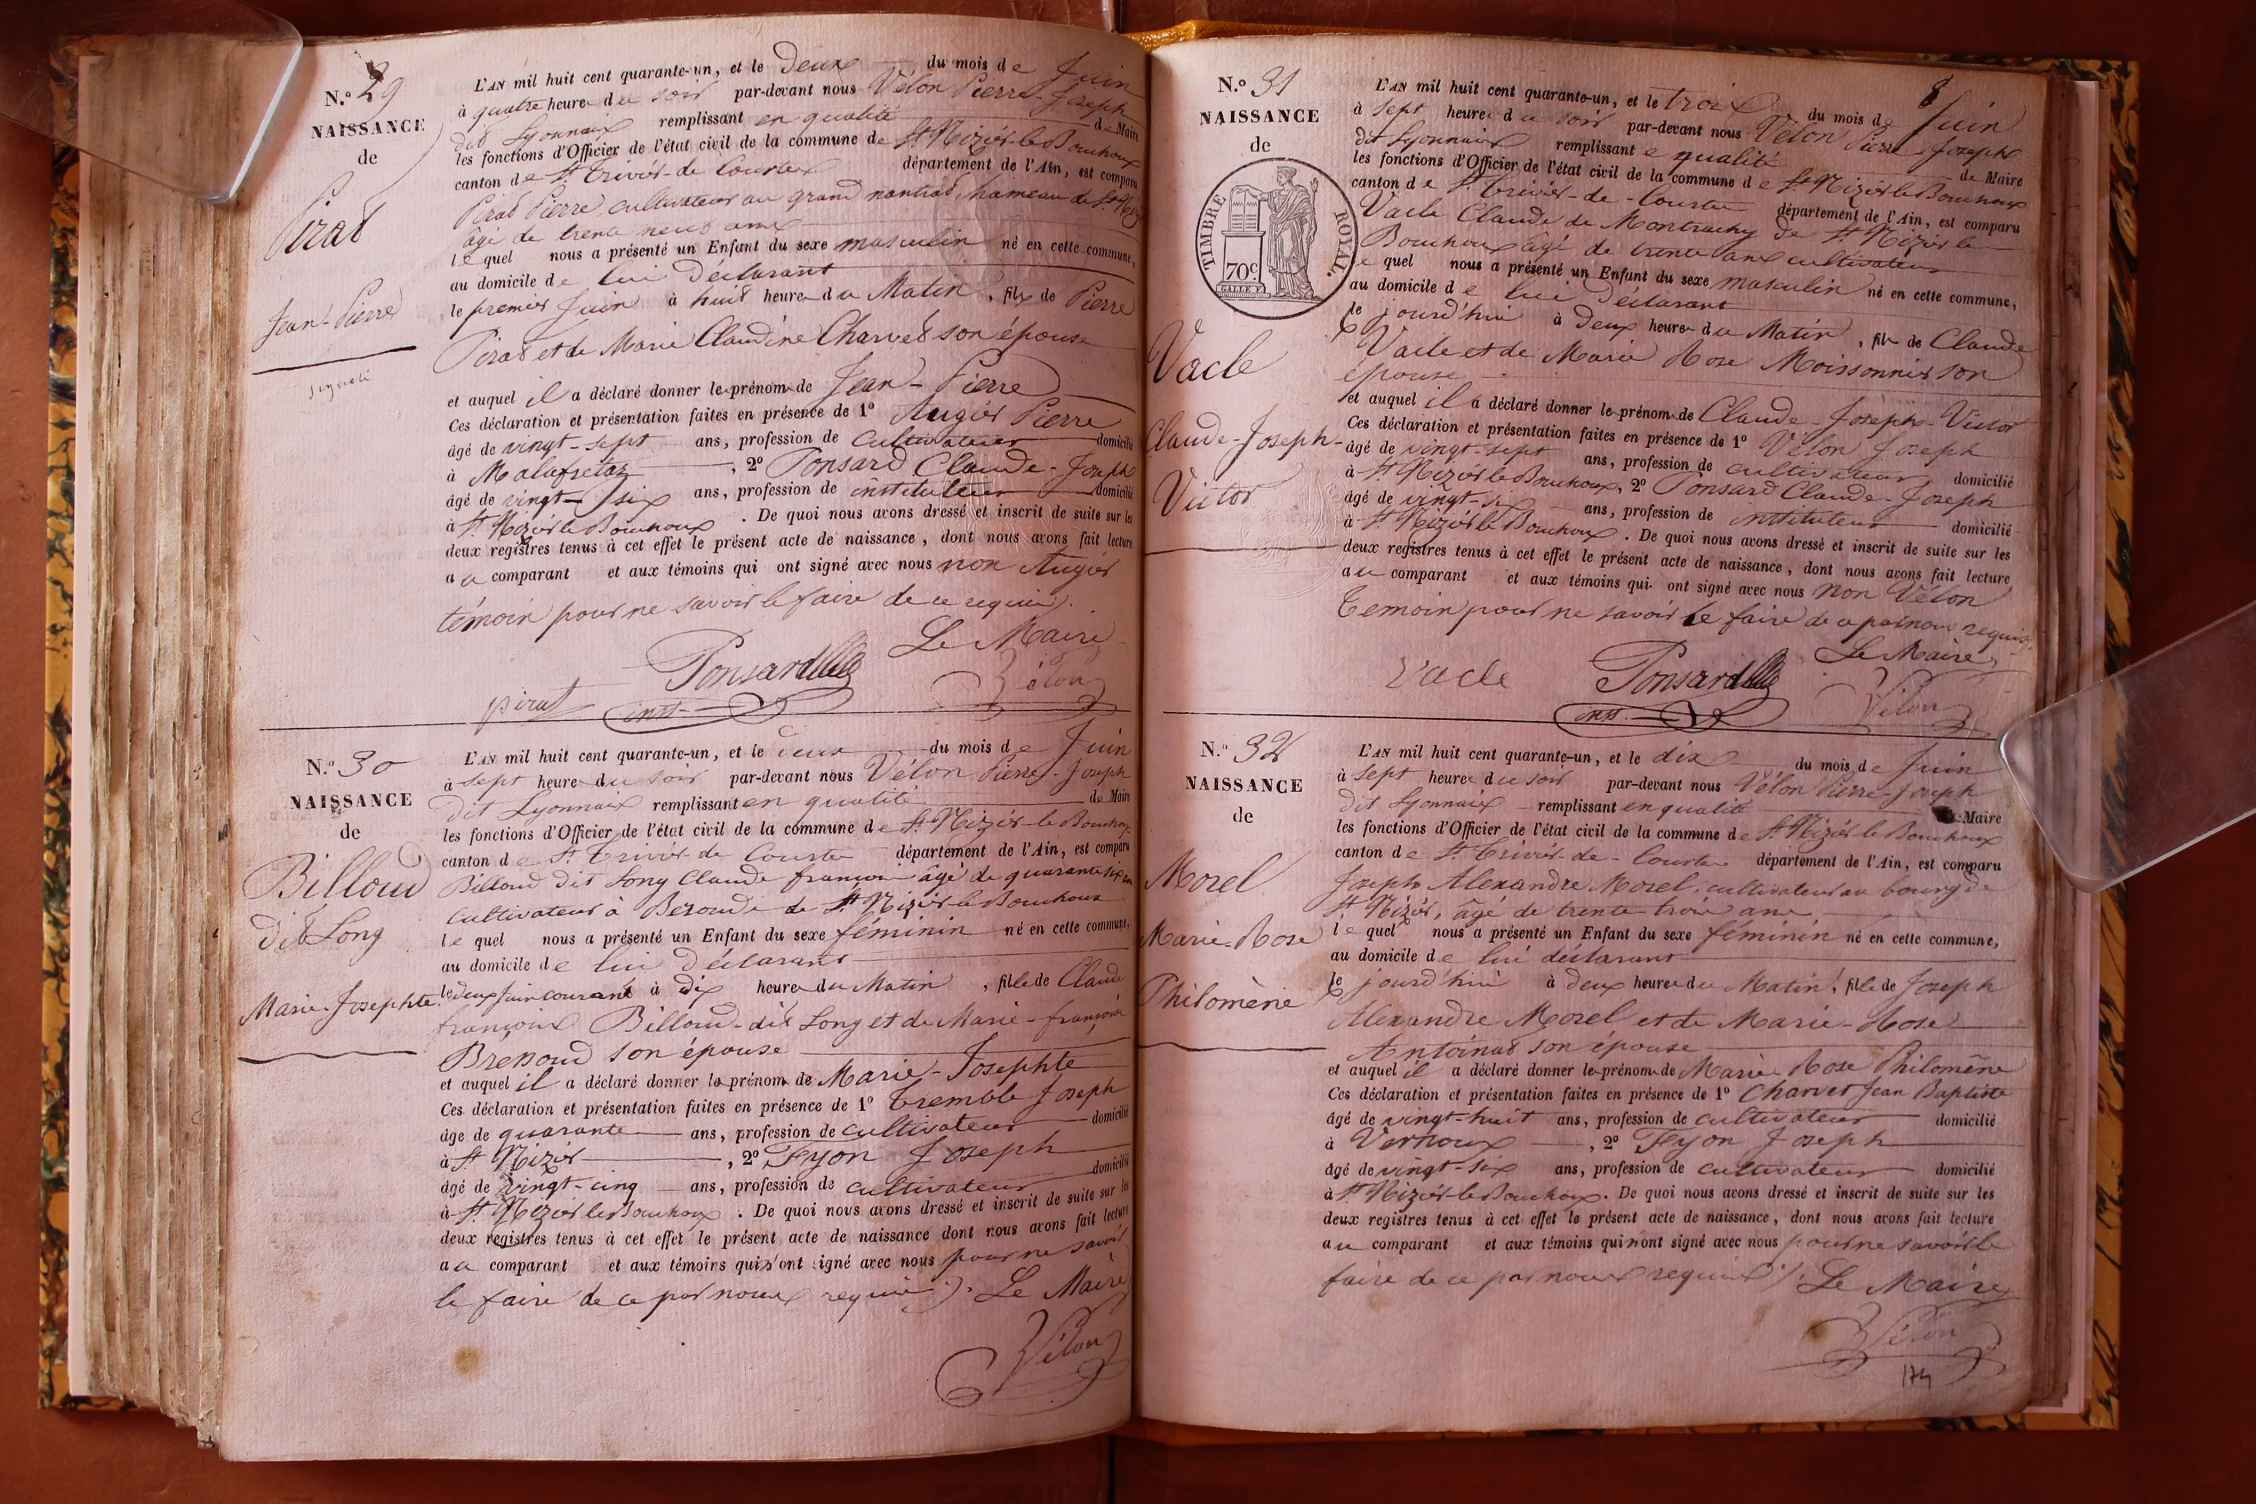 N.º 29
NAISSANCE
de
Pirat
Jean-Pierre
L'AN mil huit cent quarante-un, et le deux du mois de Juin
à quatre heures du soir par-devant nous Vélon Pierre-Joseph
dit Lyonnaix remplissant en qualité de Maire
les fonctions d'Officier de l'état civil de la commune de St Nizier-le-Bouchoux
canton de St Trivier-de-Courtes département de l'Ain, est comparu
Pirat Pierre, cultivateur au grand nantiat, hameau de St Nizier
âgé de trente neuf ans
lequel nous a présenté un Enfant du sexe masculin né en cette commune,
au domicile de lui déclarant
le premier Juin à huit heures du Matin, fils de Pierre
Pirat et de Marie Claudine Charvet son épouse
et auquel il a déclaré donner les prénoms de Jean-Pierre
Ces déclaration et présentation faites en présence de 1º Augier Pierre
âgé de vingt-sept ans, profession de cultivateur domicilié
à Malafretaz, 2º Ponsard Claude-Joseph
âgé de vingt-six ans, profession de instituteur domicilié
à St Nizier le Bouchoux. De quoi nous avons dressé et inscrit de suite sur les
deux registres tenus à cet effet le présent acte de naissance, dont nous avons fait lecture
au comparant et aux témoins qui ont signé avec nous non Augier
témoin pour ne savoir le faire de ce requis.
Le Maire
pirat Ponsard Vélon
inst.
N.º 30
NAISSANCE
de
Billoud
dit Long
Marie-Josephte
L'AN mil huit cent quarante-un, et le deux du mois de Juin
à sept heures du soir par-devant nous Vélon Pierre-Joseph
dit Lyonnaix remplissant en qualité de Maire
les fonctions d'Officier de l'état civil de la commune de St Nizier-le-Bouchoux
canton de St Trivier de Courtes département de l'Ain, est comparu
Billoud dit Long Claude françois âgé de quarante six ans
cultivateur à Bezoude de St Nizier le Bouchoux
lequel nous a présenté un Enfant du sexe féminin né en cette commune,
au domicile de lui déclarant
le deux Juin courant à dix heures du Matin, fille de Claude
françois Billoud-dit Long et de Marie-françoise
Brenoud son épouse
et auquel il a déclaré donner les prénoms de Marie-Josephte
Ces déclaration et présentation faites en présence de 1º Tremble Joseph
âgé de quarante ans, profession de cultivateur domicilié
à St Nizier, 2º Feyon Joseph
âgé de vingt-cinq ans, profession de cultivateur domicilié
à St Nizier le Bouchoux. De quoi nous avons dressé et inscrit de suite sur les
deux registres tenus à cet effet le présent acte de naissance dont nous avons fait lecture
au comparant et aux témoins qui n'ont signé avec nous pour ne savoir
le faire de ce par nous requis. Le Maire
Vélon
N.º 31
NAISSANCE
de
TIMBRE ROYAL.
70c.
Vacle
Claude-Joseph-
Victor
8
L'AN mil huit cent quarante-un, et le trois du mois de Juin
à sept heures du soir par-devant nous Vélon Pierre-Joseph
dit Lyonnaix remplissant en qualité de Maire
les fonctions d'Officier de l'état civil de la commune de St Nizier le Bouchoux
canton de St Trivier-de-Courtes département de l'Ain, est comparu
Vacle Claude de Montrachy de St Nizier le
Bouchoux âgé de trente ans cultivateur
lequel nous a présenté un Enfant du sexe masculin né en cette commune,
au domicile de lui déclarant
le jourd'hui à deux heures du Matin, fils de Claude
Vacle et de Marie Rose Moissonnier son
épouse
et auquel il a déclaré donner les prénoms de Claude-Joseph-Victor
Ces déclaration et présentation faites en présence de 1º Vélon Joseph
âgé de vingt-sept ans, profession de cultivateur domicilié
à St Nizier le Bouchoux, 2º Ponsard Claude-Joseph
âgé de vingt-six ans, profession de instituteur domicilié
à St Nizier le Bouchoux. De quoi nous avons dressé et inscrit de suite sur les
deux registres tenus à cet effet le présent acte de naissance, dont nous avons fait lecture
au comparant et aux témoins qui ont signé avec nous non Vélon
Temoin pour ne savoir le faire de ce par nous requis.
Le Maire,
Vacle Ponsard Vélon
inst.
N.º 32
NAISSANCE
de
Morel
Marie-Rose
Philomène
L'AN mil huit cent quarante-un, et le dix du mois de Juin
à sept heures du soir par-devant nous Vélon Pierre-Joseph
dit Lyonnaix remplissant en qualité de Maire
les fonctions d'Officier de l'état civil de la commune de St Nizier le Bouchoux
canton de St Trivier-de-Courtes département de l'Ain, est comparu
Joseph Alexandre Morel, cultivateur au bourg de
St Nizier, âgé de trente trois ans
lequel nous a présenté un Enfant du sexe féminin né en cette commune,
au domicile de lui déclarant
le jourd'hui à deux heures du Matin, fille de Joseph
Alexandre Morel et de Marie-Rose
Antoinat son épouse
et auquel il a déclaré donner les prénoms de Marie Rose Philomène
Ces déclaration et présentation faites en présence de 1º Charvet Jean Baptiste
âgé de vingt-huit ans, profession de cultivateur domicilié
à Vernoux, 2º Feyon Joseph
âgé de vingt-six ans, profession de cultivateur domicilié
à St Nizier-le-Bouchoux. De quoi nous avons dressé et inscrit de suite sur les
deux registres tenus à cet effet le présent acte de naissance, dont nous avons fait lecture
au comparant et aux témoins qui n'ont signé avec nous pour ne savoir le
faire de ce par nous requis. Le Maire
Vélon
174